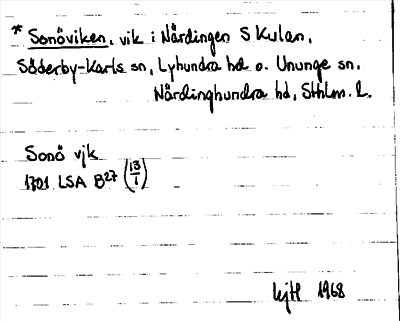 * Sonöviken, vik i Närdingen S Kulan,
Söderby-Karls sn, Lyhundra hd o. Ununge sn.
Närdinghundra hd, Sthlm. l.
Sonö vjk
1701 LSA B27 (13/1)
1968